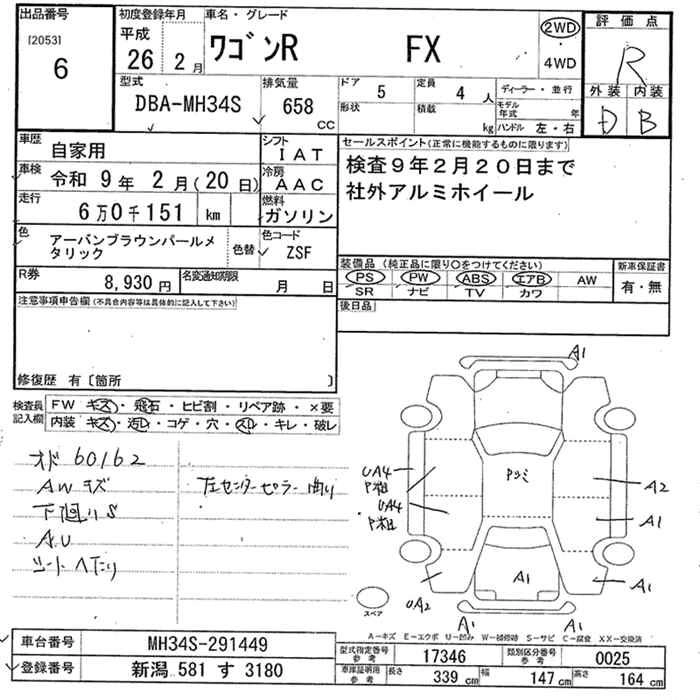 出品番号
[2053]
6
初度登録年月
平成
26 2月
車名・グレード
ワゴンR FX
2WD
・
4WD
評価点
R
外装 内装
D B
型式
DBA-MH34S
排気量
658
CC
ドア 5
形状
定員 4 人
積載 kg
ディーラー・並行
モデル年式 年
ハンドル 左・右
車歴 自家用
シフト IAT
車検 令和 9年 2月(20日)
冷房 AAC
走行 6万0千151 km
燃料 ガソリン
色 アーバンブラウンパールメタリック
色替
色コード ZSF
R券 8,930円
名変通知期限 月 日
セールスポイント(正常に機能するものに限ります)
検査9年2月20日まで
社外アルミホイール
装備品(純正品に限り○をつけてください)
PS PW ABS エアB AW
SR ナビ TV カワ
新車保証書
有・無
後日品
注意事項申告欄(不具合内容等は具体的に記入して下さい)
修復歴 有〔箇所 〕
検査員記入欄
FW キズ・飛石・ヒビ割・リペア跡・×要
内装 キズ・汚レ・コゲ・穴・スレ・キレ・破レ
オド 60162
AWキズ
下廻りS
AU
シートヘたり
左センターピラー曲り
A1
UA4
P粗
UA4
P粗
Pツミ
A2
A1
A1
UA2
A1
A1
A1
スペア
A-キズ E-エクボ U-凹み W-補修跡 S-サビ C-腐食 XX-交換済
車台番号 MH34S-291449
登録番号 新潟 581 す 3180
型式指定番号 参考 17346
類別区分番号 参考 0025
車庫証明用 参考
長さ 339 cm
幅 147 cm
高さ 164 cm